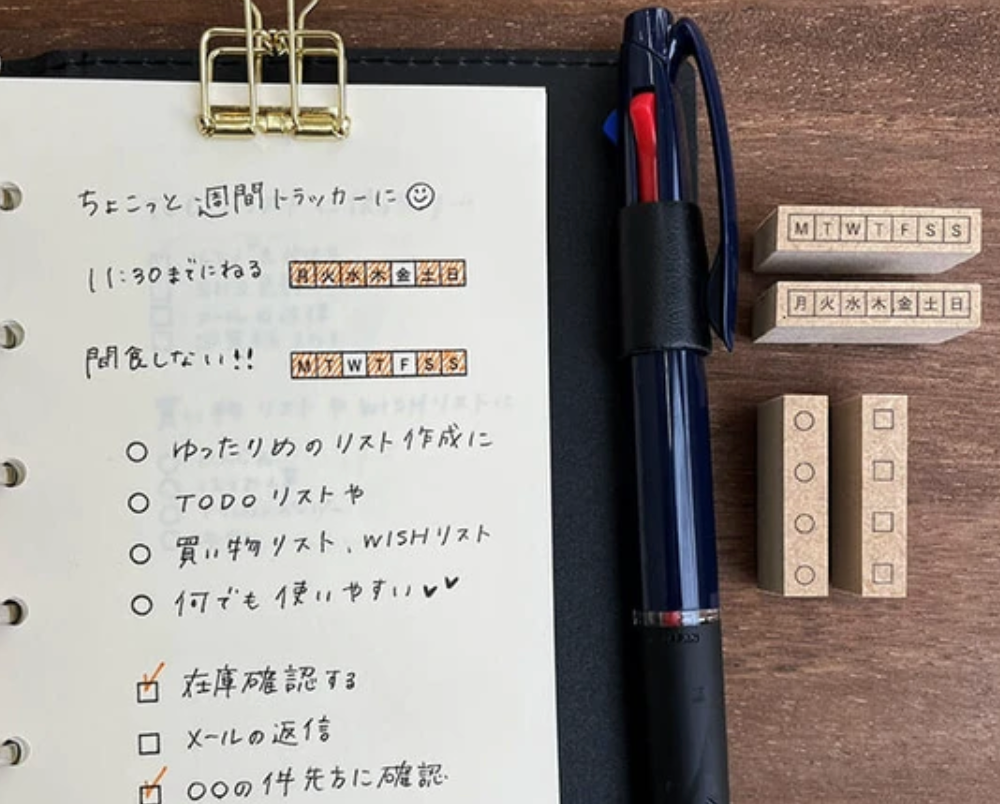 ちょこっと週間トラッカーに
11:30までにねる 月火水木金土日
間食しない!! MTWTFSS
ゆったりめのリスト作成に
TODOリストや
買い物リスト、WISHリスト
何でも使いやすい
在庫確認する
メールの返信
○○の件先方に確認
MTWTFSS
月火水木金土日